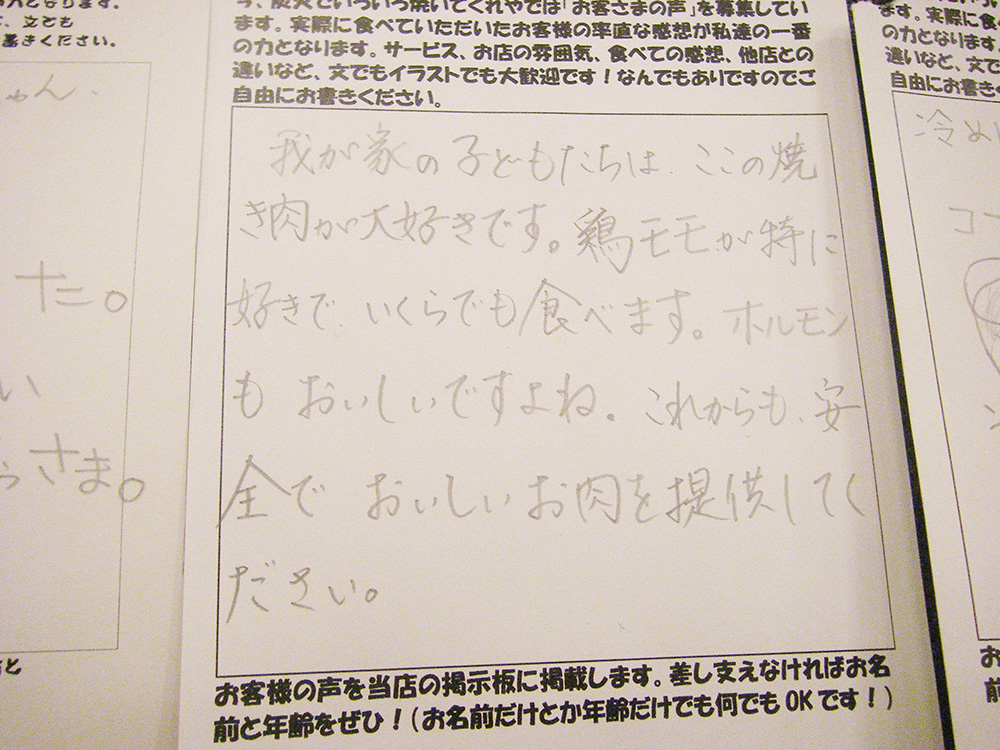 今、炭火でいろいろ焼いてくれやでは「お客さまの声」を募集してい
ます。実際に食べていただいたお客様の率直な感想が私達の一番
の力となります。サービス、お店の雰囲気、食べての感想、他店との
違いなど、文でもイラストでも大歓迎です！なんでもありですのでご
自由にお書きください。
我が家の子どもたちは、ここの焼
き肉が大好きです。鶏モモが特に
好きで、いくらでも食べます。ホルモン
も おいしいですよね。これからも、安
全で おいしいお肉を提供してく
ださい。
お客様の声を当店の掲示板に掲載します。差し支えなければお名
前と年齢をぜひ！（お名前だけとか年齢だけでも何でもOKです！）
となります。
、文でも
書きください。
ゃん、
た。
い
さま。
と
ます。実際に食
の力となります
違いなど、文で
自由にお書き
冷め
コ
お
前